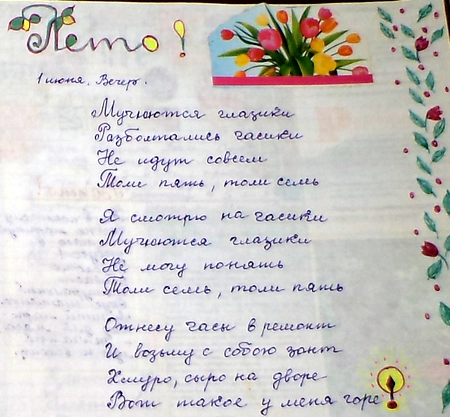 Лето!
1 июня. Вечер.
Мучаются глазики
Разболтались часики
Не идут совсем
Толи пять, толи семь
Я смотрю на часики
Мучаются глазики
Не могу понять
Толи семь, толи пять
Отнесу часы в ремонт
И возьму с собою зонт
Хмуро, сыро на дворе
Вот такое у меня горе